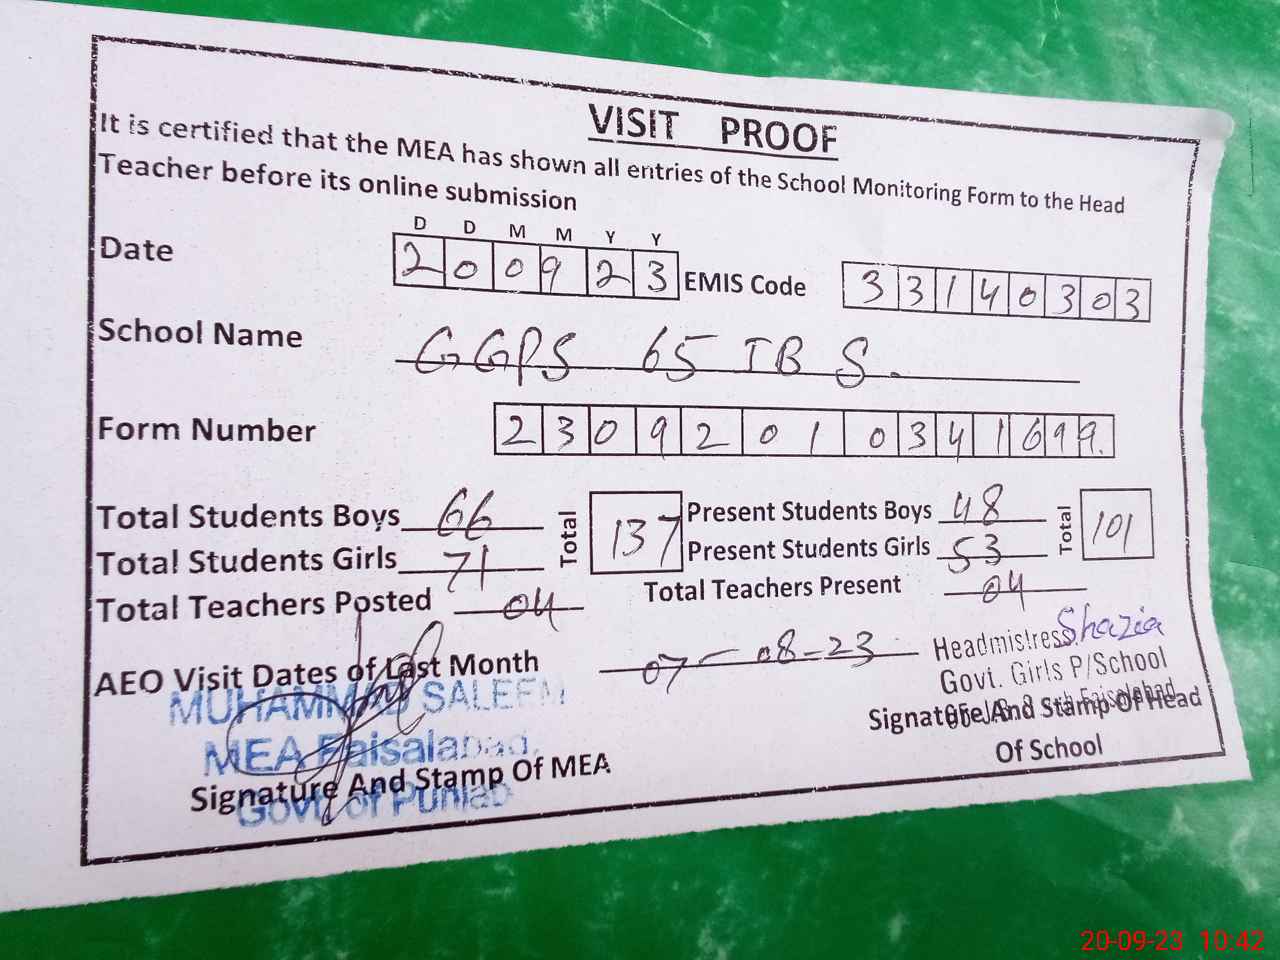 VISIT PROOF
It is certified that the MEA has shown all entries of the School Monitoring Form to the Head
Teacher before its online submission
D D M M Y Y
Date 2 0 0 9 2 3 EMIS Code 3 3 1 4 0 3 0 3
School Name GGPS 65 JB S.
Form Number 2 3 0 9 2 0 1 0 3 4 1 6 9 9.
Total Students Boys 66 Total 137 Present Students Boys 48 Total 101
Total Students Girls 71 Present Students Girls 53
Total Teachers Posted 04 Total Teachers Present 04
AEO Visit Dates of Last Month 07-08-23
Headmistress Shazia
Govt. Girls P/School
Faisalabad
MUHAMMAD SALEEM
MEA Faisalabad.
Govt. of Punjab
Signature And Stamp Of MEA
Signature And Stamp Of Head
Of School
20-09-23 10:42